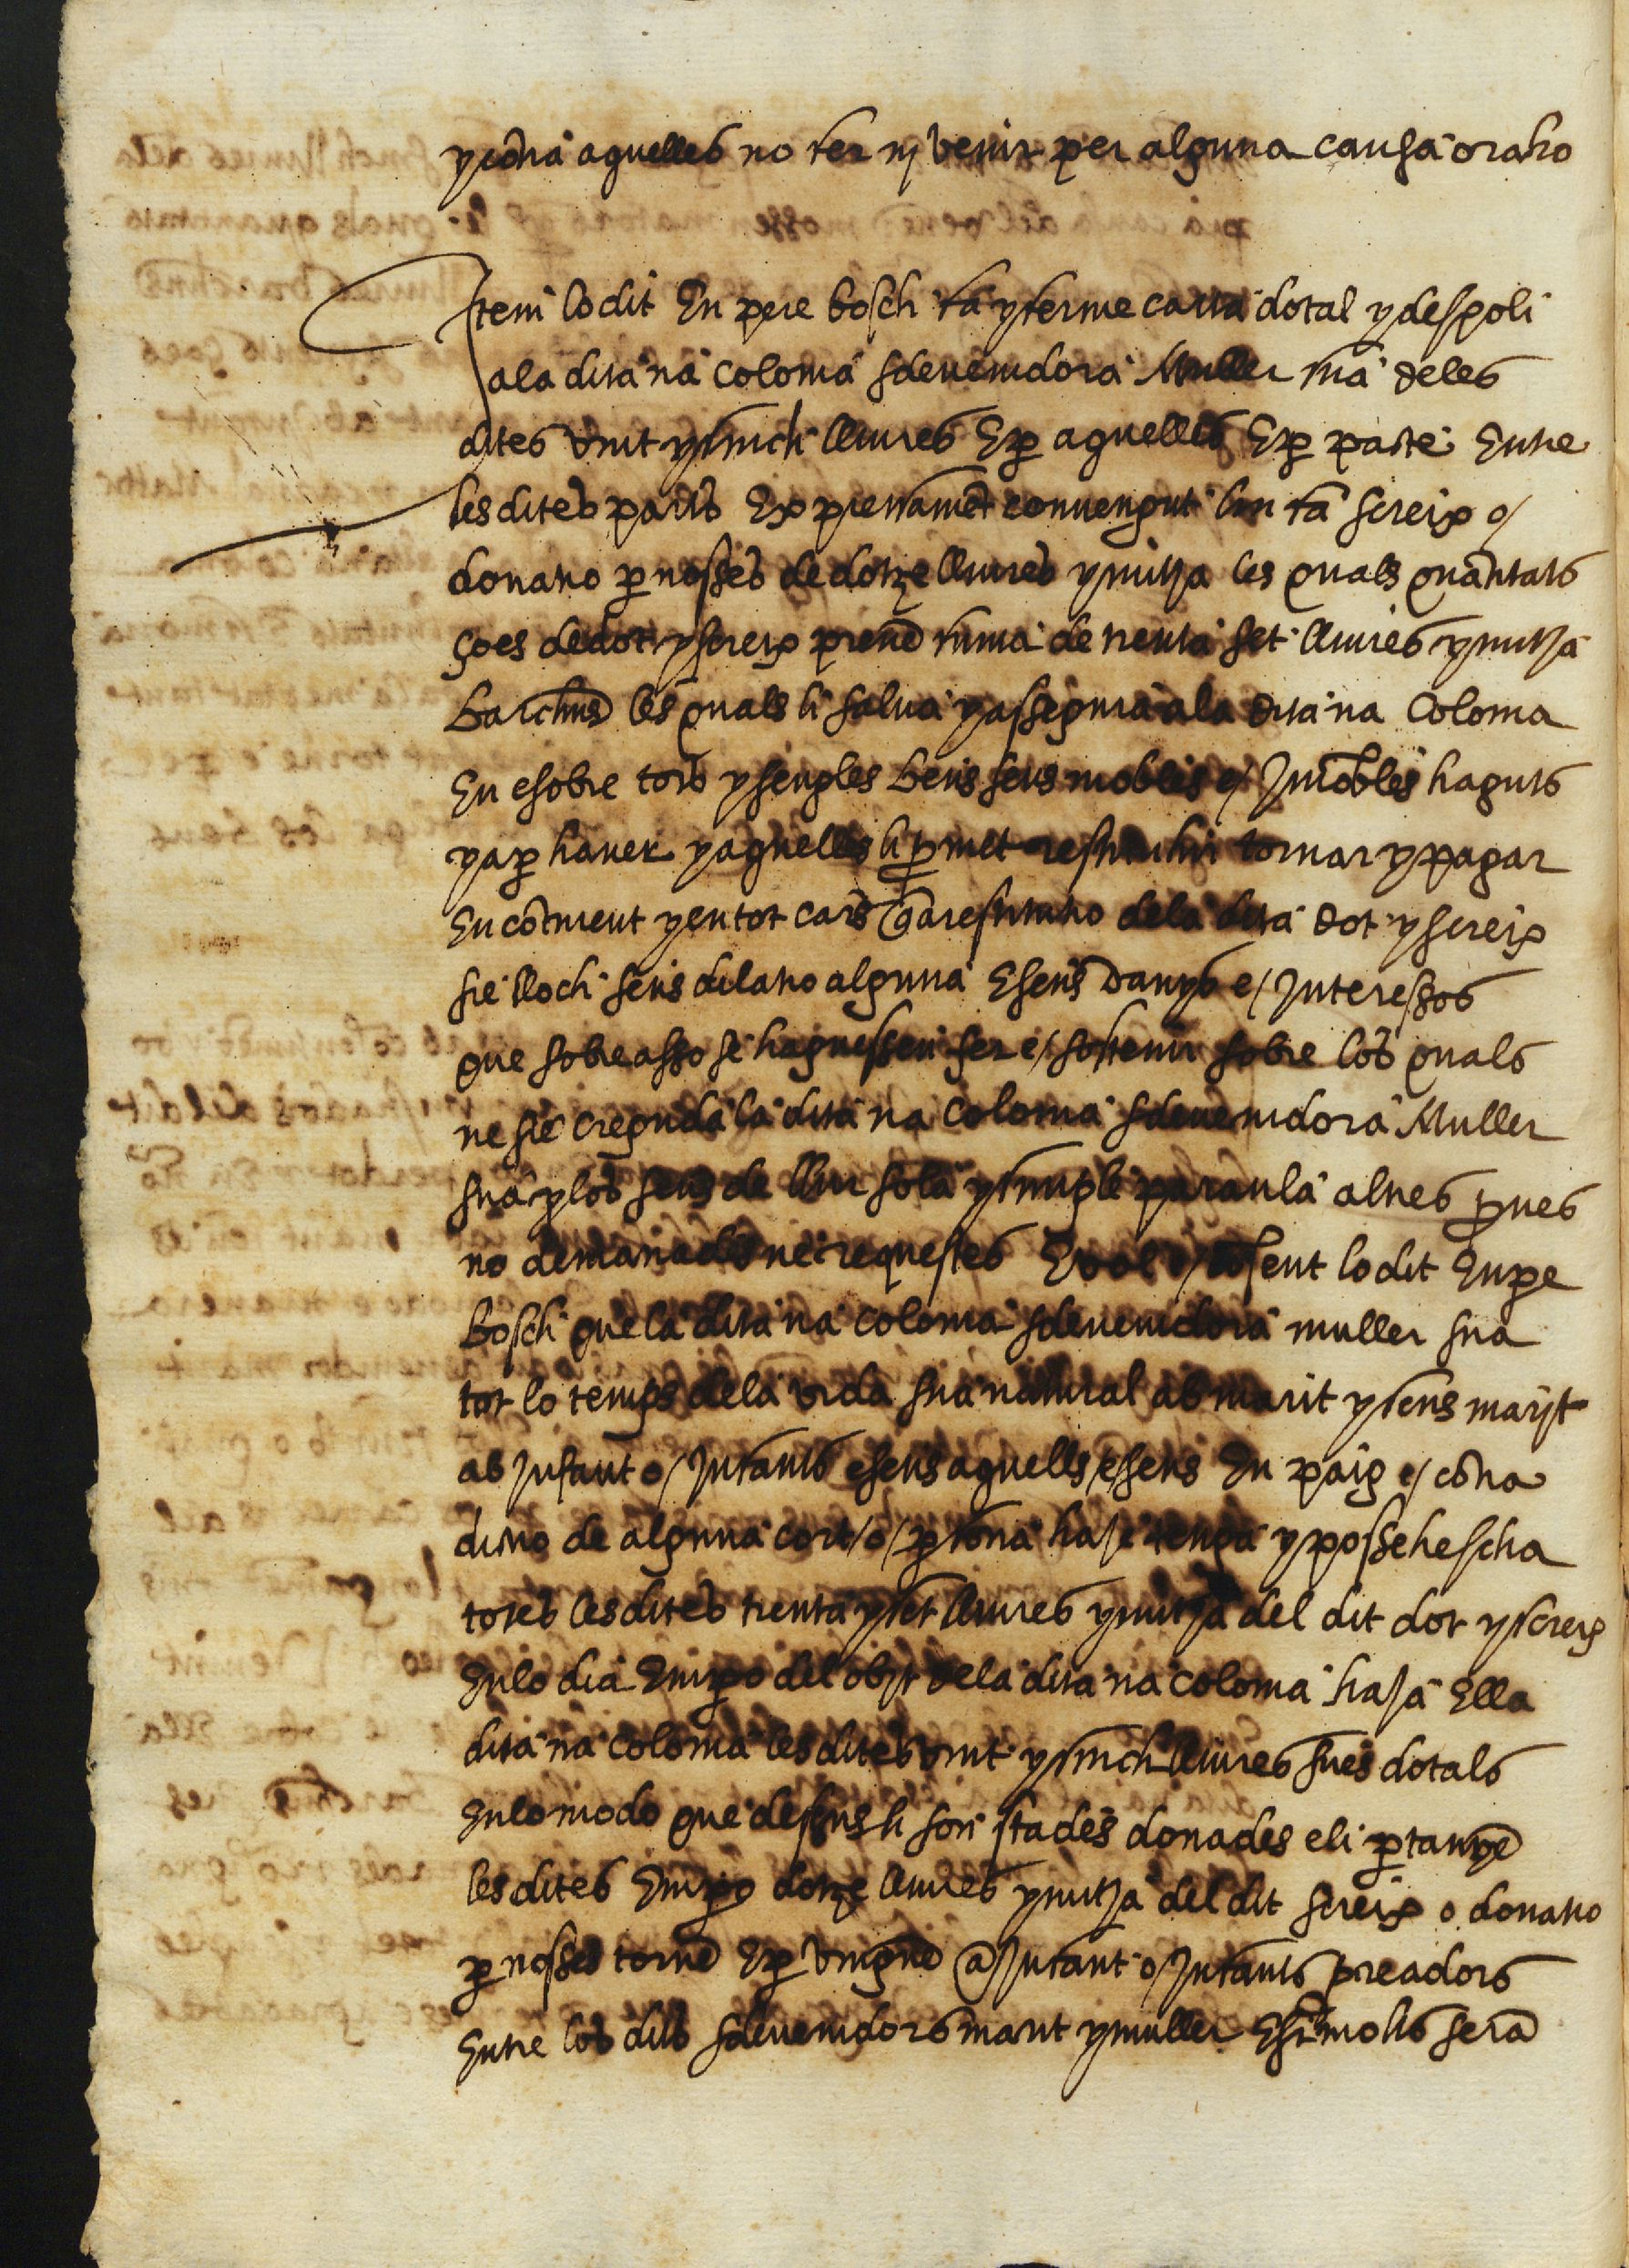 y contra aquelles no fer ni venir per alguna causa o raho
Item lo dit En pere bosch fa y ferme carta dotal y despoli
a la dita na coloma sdevenidora Muller sua de les
dites vint y sinch lliures E per aquelles E per pacte Entre
les dites parts Expressament convengut li fa screix o/
donatio per nosses de dotze lliures y mitja les quals quantitats
ço es de dot y screix prenen suma de trenta set lliures y mitja
Barchns les quals li salva y assegura a la dita na Coloma
En e sobre tots y sengles bens seus mobles e/ Immobles haguts
y a per haver y aquelles li promet restituhir tornar y pagar
En continent y en tot cars que a restitutio de la dita dot y screix
sie lloch sens dilatio alguna E sens danys e/ Interessos
que sobre asso se haguessen fer e/ sostenir sobre los quals
ne sie creguda la dita na Coloma sdevenidora Muller
sua y los seus de llur sola y simple paraula altres proves
no demanades ne requestes E vol e/ consent lo dit En pe
Bosch que la dita na Coloma sdevenidora muller sua
tot lo temps de la vida sua natural ab marit y sens marit
ab Infant o/ Infants e sens aquells e sens En paig e/ contra
dictio de alguna cort /o/ persona haje tenga y possehescha
totes les dites trenta y set lliures y mitja del dit dot y screix
En lo dia Empero del obit de la dita na Coloma haja Ella
dita na Coloma les dites vint y sinch lliures sues dotals
En lo modo que desus li son stades donades e li pertanyen
les dites Empero dotze lliures y mitja del dit screix o donatio
per nosses tornen E pervinguen a Infant o/ Infants procreadors
Entre los dits sdevenidors marit y muller E si molts seran